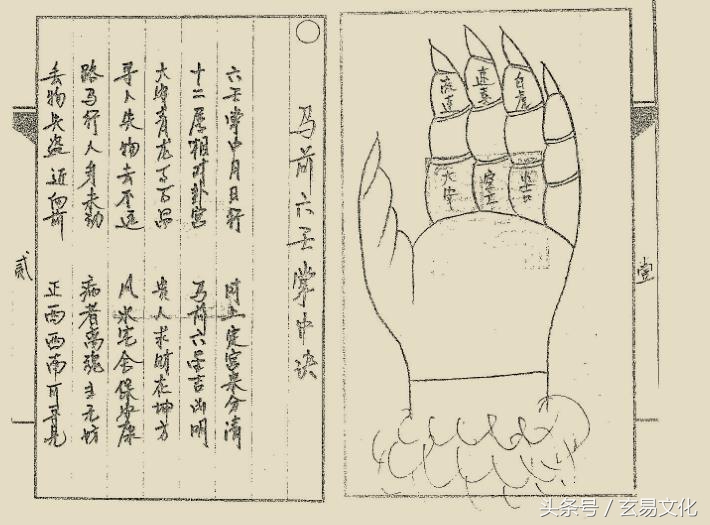 马前六壬掌中诀
六壬掌中月日行 时上定宫来分清
十二属相对卦宫 马前六壬吉凶明
大安青龙 昌 贵人求财在坤方
寻人失物去不远 风水宅舍保安康
路马行人身未动 病者离魂主无坊
丢物失盗近向前 正西西南可寻见
贰
流连
速喜
白虎
大安
空亡
小吉
壹
头条号 / 玄易文化